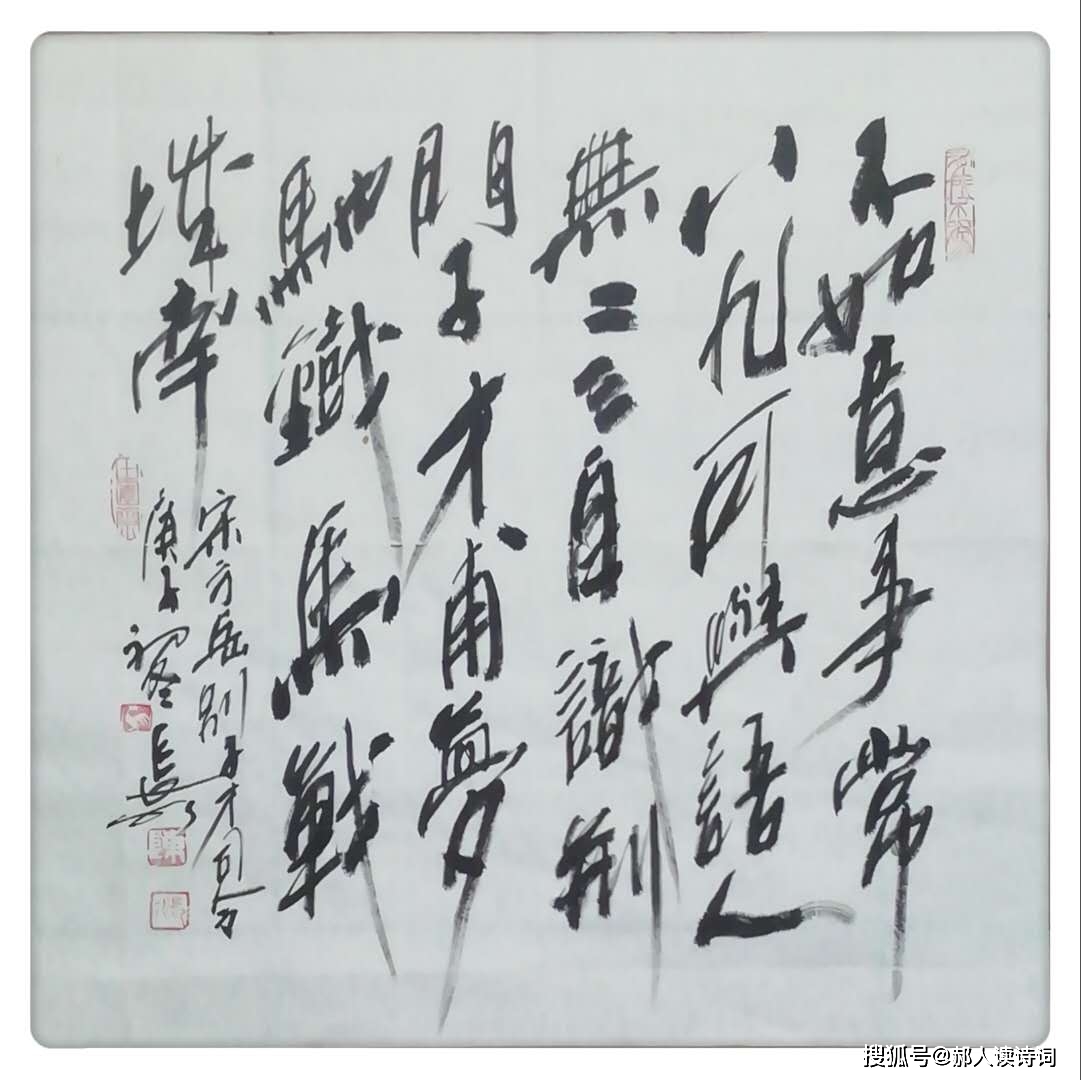 不如意事常
八九可與語人
無二三自識荆
門子才甫夢
馳鐵馬戰
城南
宋方岳別子才司令
庚子
搜狐号@郝人读诗词